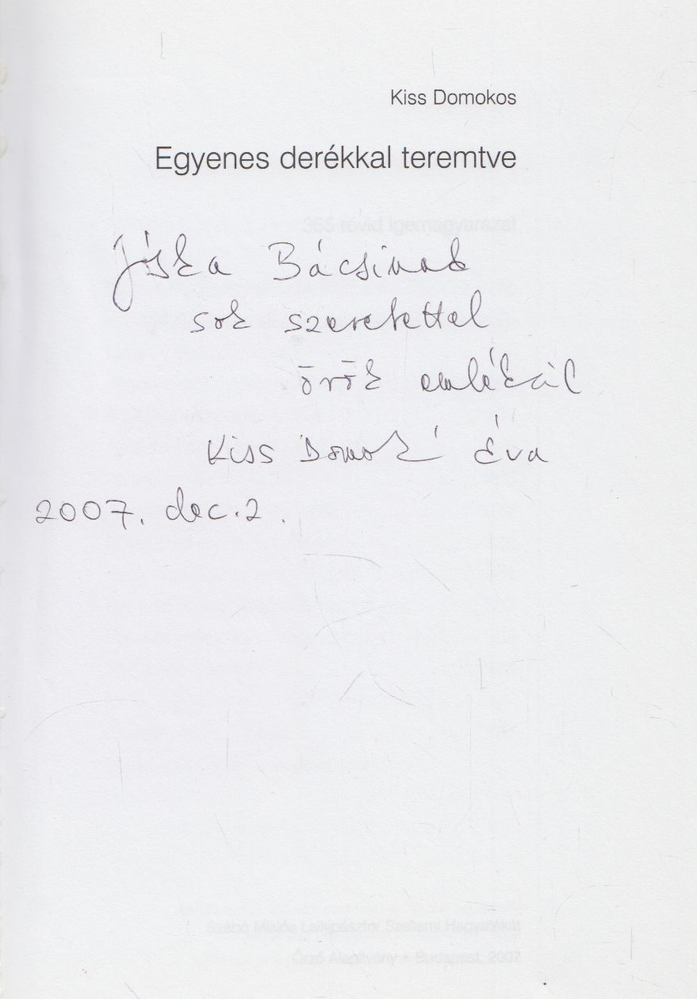 Kiss Domokos
Egyenes derékkal teremtve
365 rövid igemagyarázat
Jóska Bácsinak
sok szeretettel
örök emlékül
Kiss Éva
2007. dec. 2.
Szabó Miklós Lelkipásztor Szellemi Hagyatékát
Őrző Alapítvány • Budapest, 2007